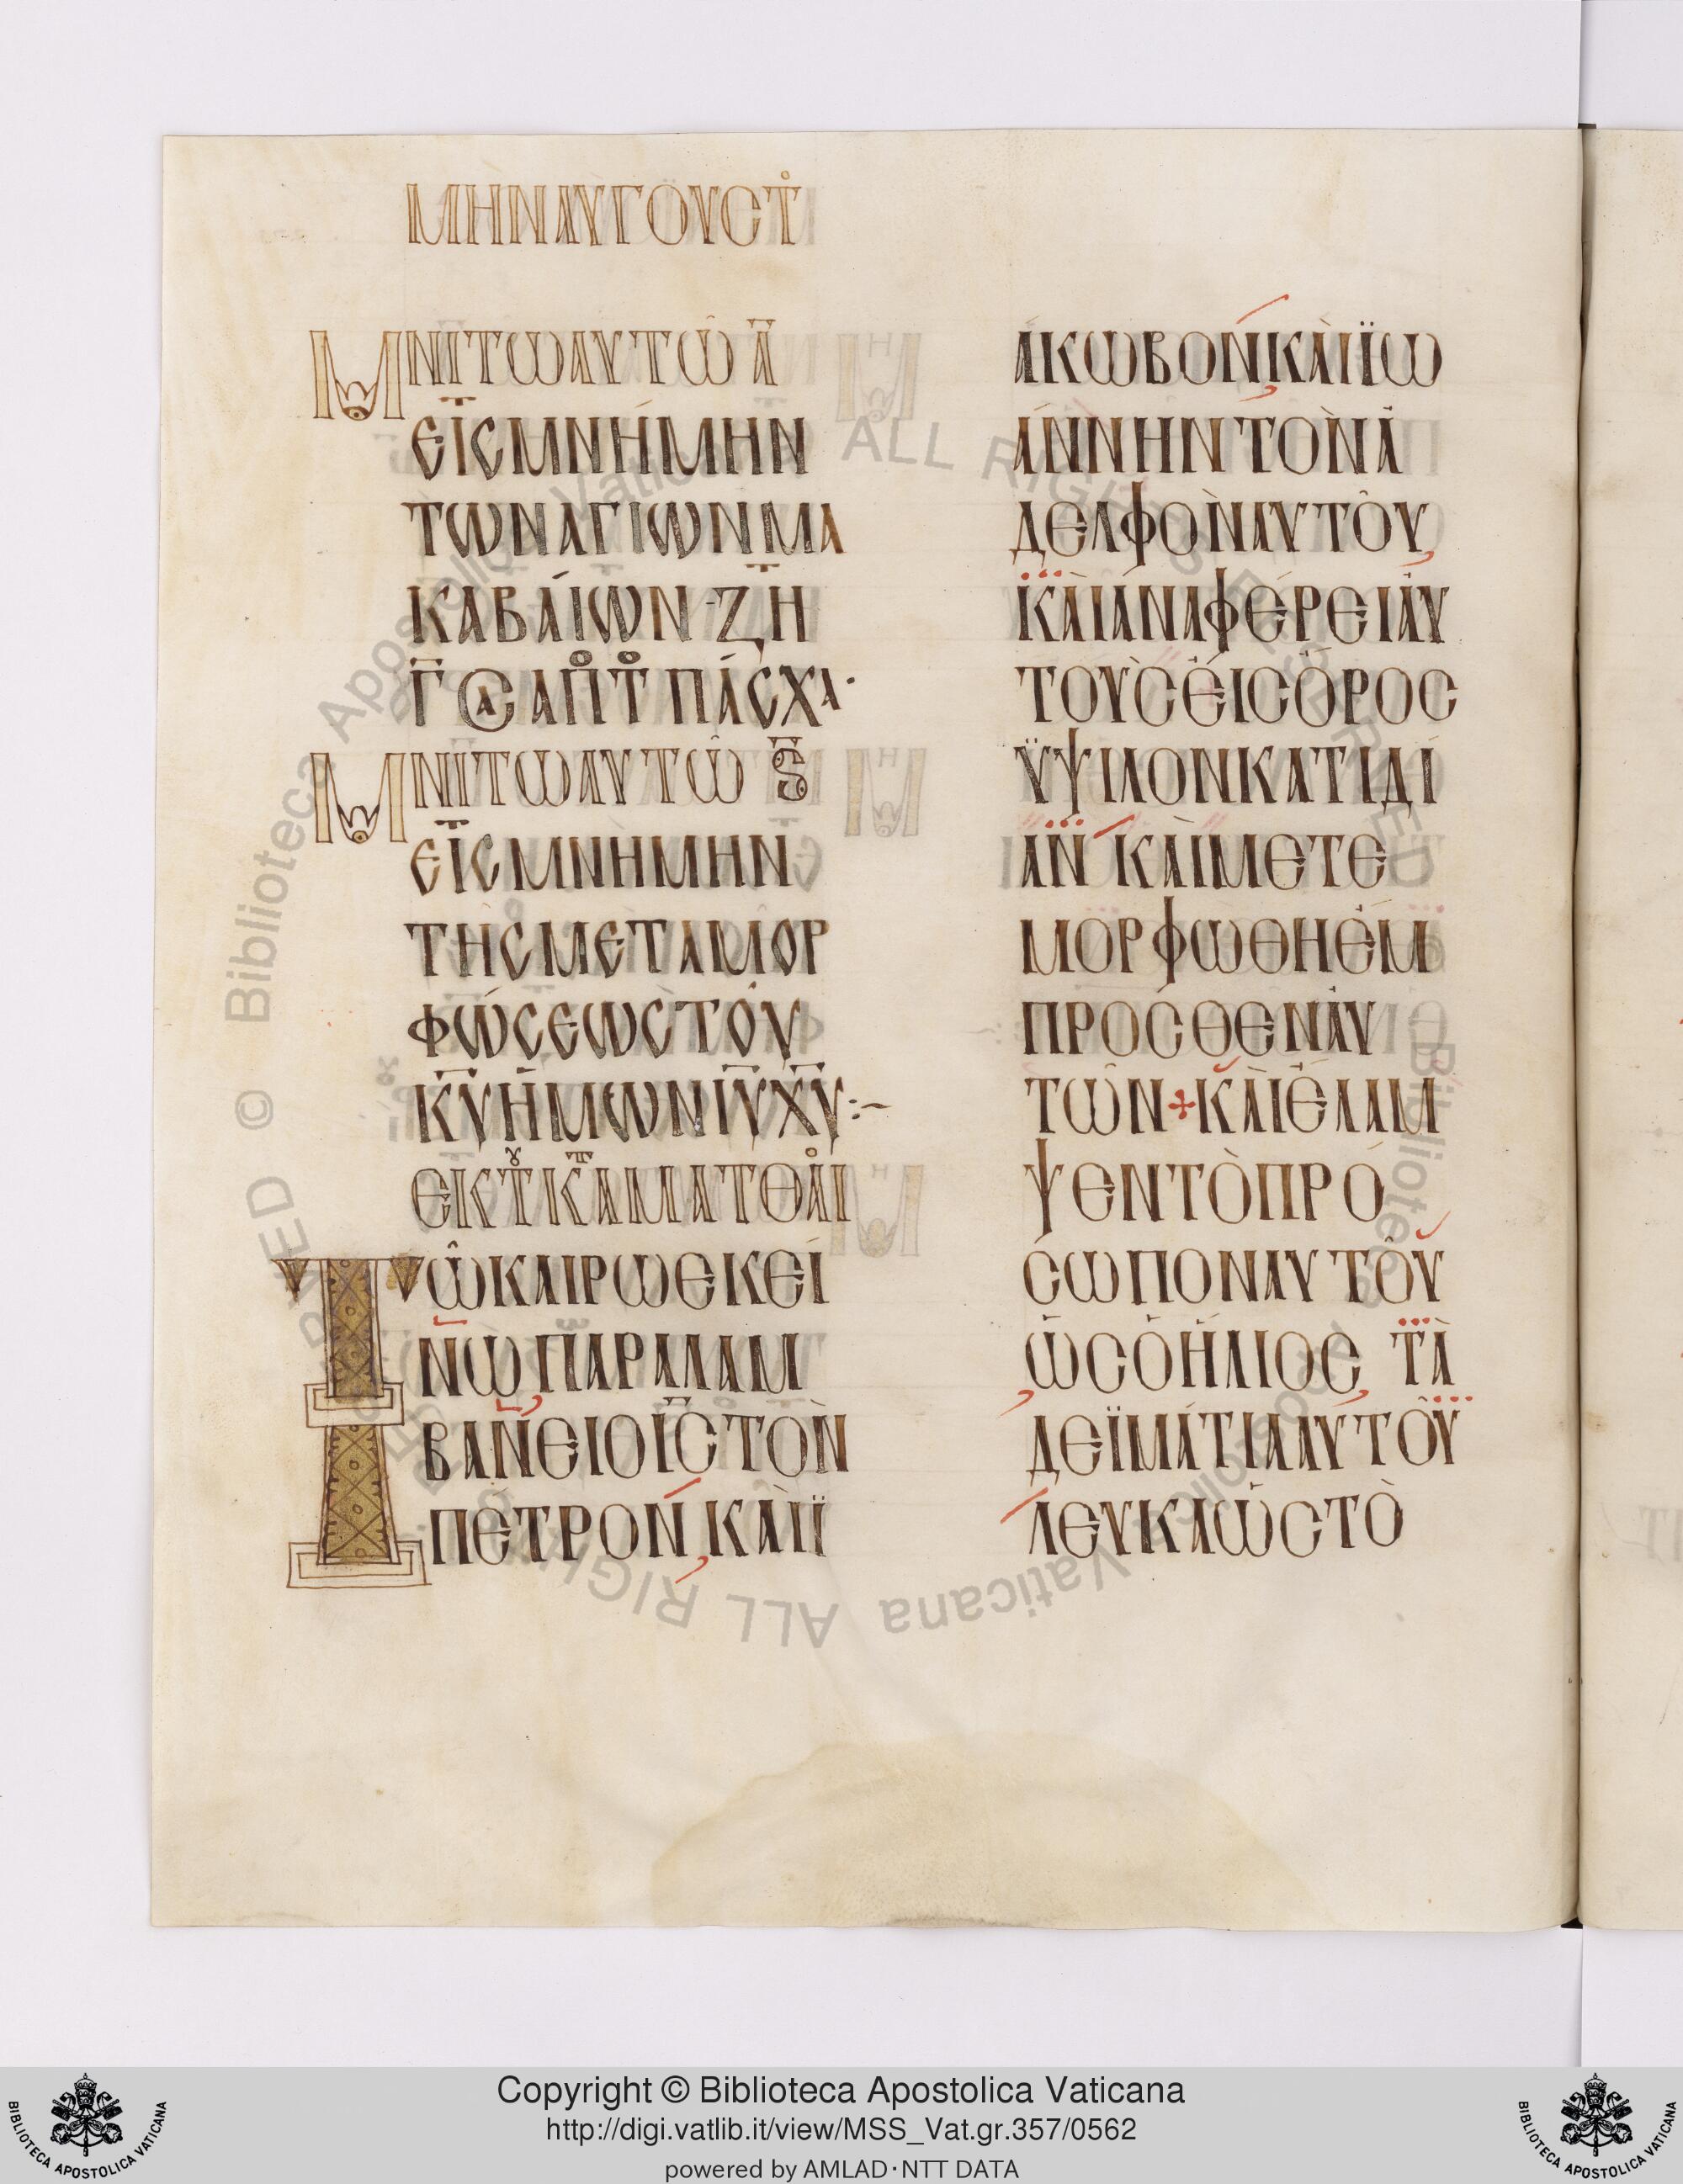 ΜΗΝ ΑΥΓΟΥϹΤ
ΜΝΙ ΤΩ ΑΥΤΩ Α
ΕΙϹ ΜΝΗΜΗΝ
ΤΩΝ ΑΓΙΩΝ ΜΑ
ΚΑΒΑΙΩΝ · ΖΗ
Γ ΑΠ Τ ΠΑϹΧΑ ·
ΜΝΙ ΤΩ ΑΥΤΩ Ϛ
ΕΙϹ ΜΝΗΜΗΝ
ΤΗϹ ΜΕΤΑΜΟΡ
ΦΩϹΕΩϹ ΤΟΥ
ΚΥ ΗΜΩΝ ΙΥ ΧΥ :~
ΕΚ Τ Κ ΜΑΤΘΑΙ
ΤΩ ΚΑΙΡΩ ΕΚΕΙ
ΝΩ ΠΑΡΑΛΑΜ
ΒΑΝΕΙ Ο ΙϹ ΤΟΝ
ΠΕΤΡΟΝ, ΚΑΙ Ϊ
ΑΚΩΒΟΝ ΚΑΙ ΪΩ
ΑΝΝΗΝ ΤΟΝ Α
ΔΕΛΦΟΝ ΑΥΤΟΥ
ΚΑΙ ΑΝΑΦΕΡΕΙ ΑΥ
ΤΟΥϹ ΕΙϹ ΟΡΟϹ
ΫΨΙΛΟΝ ΚΑΤ ΙΔΙ
ΑΝ ΚΑΙ ΜΕΤΕ
ΜΟΡΦΩΘΗ ΕΜ
ΠΡΟϹΘΕΝ ΑΥ
ΤΩΝ + ΚΑΙ ΕΛΑΜ
ΨΕΝ ΤΟ ΠΡΟ
ϹΩΠΟΝ ΑΥΤΟΥ
ΩϹ Ο ΗΛΙΟϹ ΤΑ
ΔΕ ΪΜΑΤΙΑ ΑΥΤΟΥ
ΛΕΥΚΑ ΩϹ ΤΟ
Biblioteca Apostolica Vaticana ALL RIGHTS RESERVED ©
Copyright © Biblioteca Apostolica Vaticana
http://digi.vatlib.it/view/MSS_Vat.gr.357/0562
powered by AMLAD·NTT DATA
BIBLIOTECA APOSTOLICA VATICANA
BIBLIOTECA APOSTOLICA VATICANA